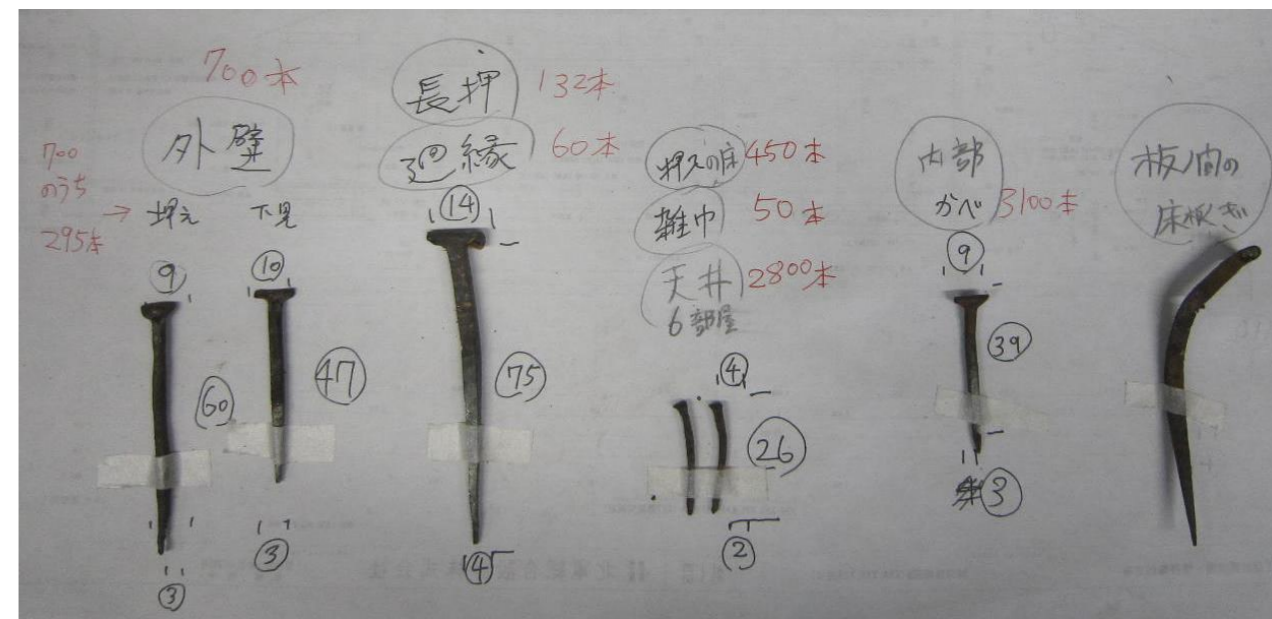 700本
外壁
700
のうち
295本
→ 押え
下見
9
10
60
47
3
3
長押 132本
廻縁 60本
14
75
4
押入の床 450本
雑巾 50本
天井 2800本
6部屋
4
26
2
内部
かべ 3100本
9
39
3
板ノ間の